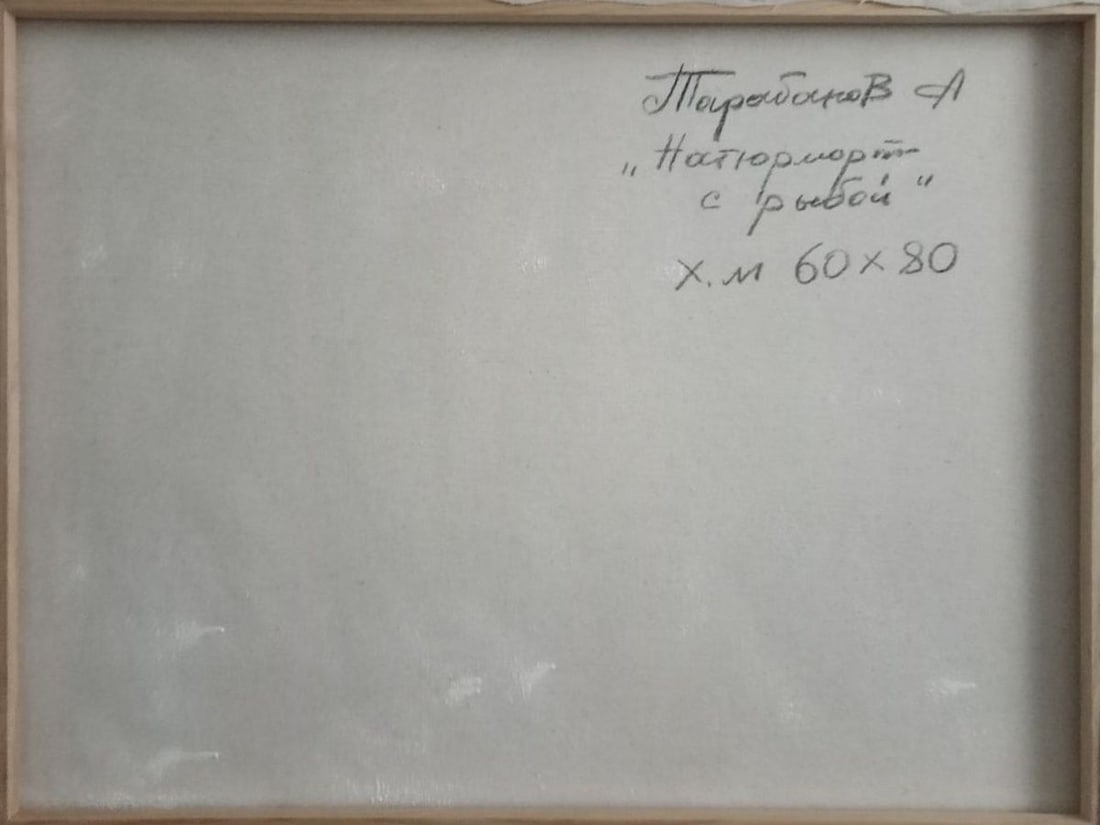 Тарабанов А
„Натюрморт
с рыбой"
х.м 60х80